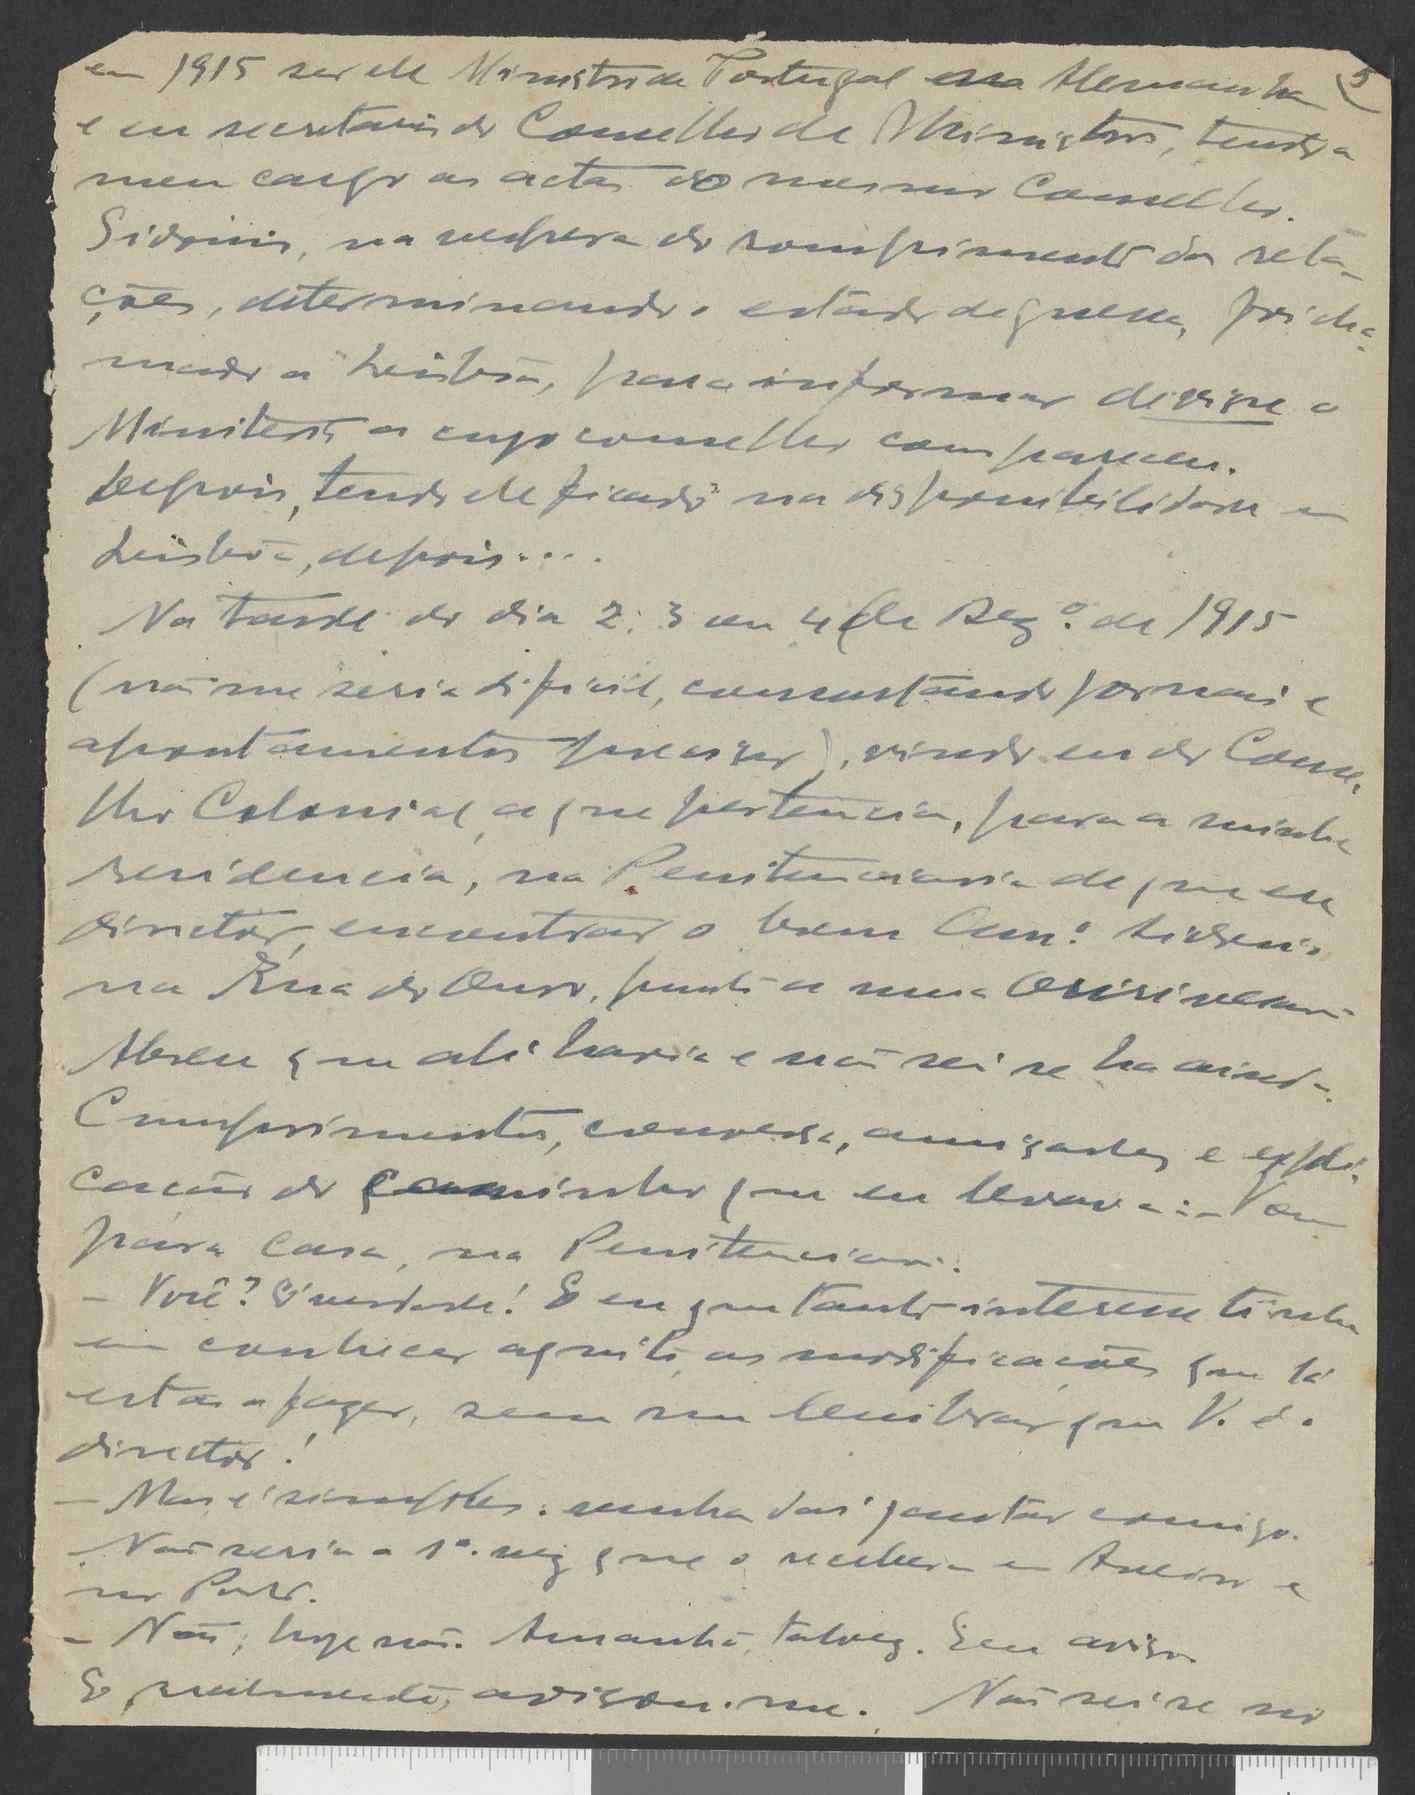 em 1915 ser ele Ministro de Portugal na Alemanha 5
e eu secretario do Conselho de Ministros, tendo a
meu cargo as actas do mesmo Conselho.
Sidonio, na vespera do rompimento das rela-
ções, determinando o estado de guerra, foi cha-
mado a Lisboa, para informar de vizu o
Ministerio a cujo conselho compareceu.
Depois, tendo ele ficado na disponibilidade em
Lisboa, depois....
Na tarde do dia 2, 3 ou 4 de Dez.º de 1915
(não me seria dificil, consultando jornais e
apontamentos precisar), vindo eu do Conse-
lho Colonial, a que pertencia, para a minha
residencia, na Penitenciaria de que era
director, encontrar o bom Am.º Sidonio
na Rua do Ouro, junto a uma Ourivesaria
Abreu que ali havia e não sei se ha ainda.
Cumprimentos, conversa, amizades e expli-
cação do caminho que eu levava: - Vou
para casa, na Penitenciaria.
- Você? É verdade! E eu que tanto interesse tinha
em conhecer aquilo, as modificações que lá
estão a fazer, sem me lembrar que V. é o
director!
- Mas é simples: venha daí jantar comigo.
- Não seria a 1ª. vez que o recebera em Aveiro e
no Porto.
- Não, hoje não. Amanhã, talvez. Eu aviso.
E, realmente, avisou-me. Não sei se no